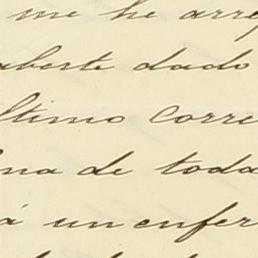 me he arre
aberte dado
ltimo Corre
na de toda
á un enfer